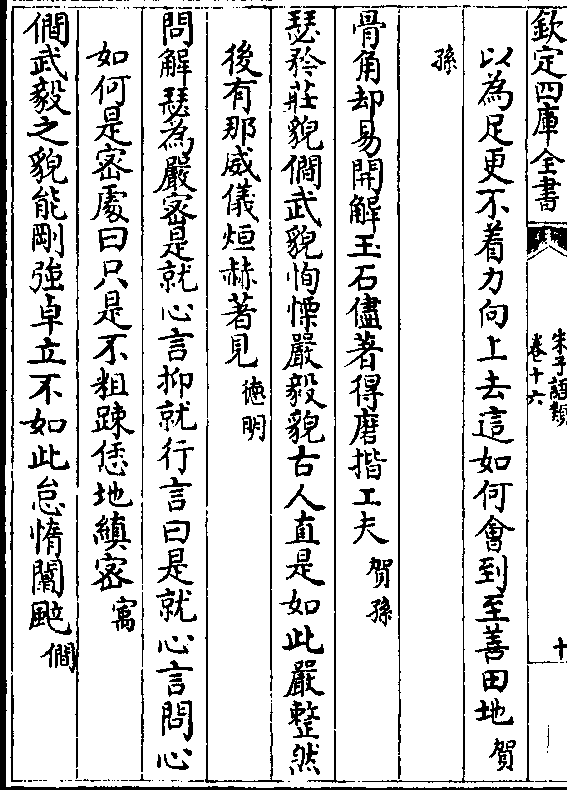 欽定四庫全書
朱子語類
卷十六
十
以為足更不着力向上去這如何會到至善田地賀
孫
骨角却易開解玉石儘著得磨揩工夫賀孫
瑟矜莊貌僩武貌恂慄嚴毅貌古人直是如此嚴整然
後有那威儀烜赫著見德明
問解瑟為嚴密是就心言抑就行言曰是就心言問心
如何是密處曰只是不粗踈恁地縝密㝢
僩武毅之貌能剛強卓立不如此怠惰闒颯僩